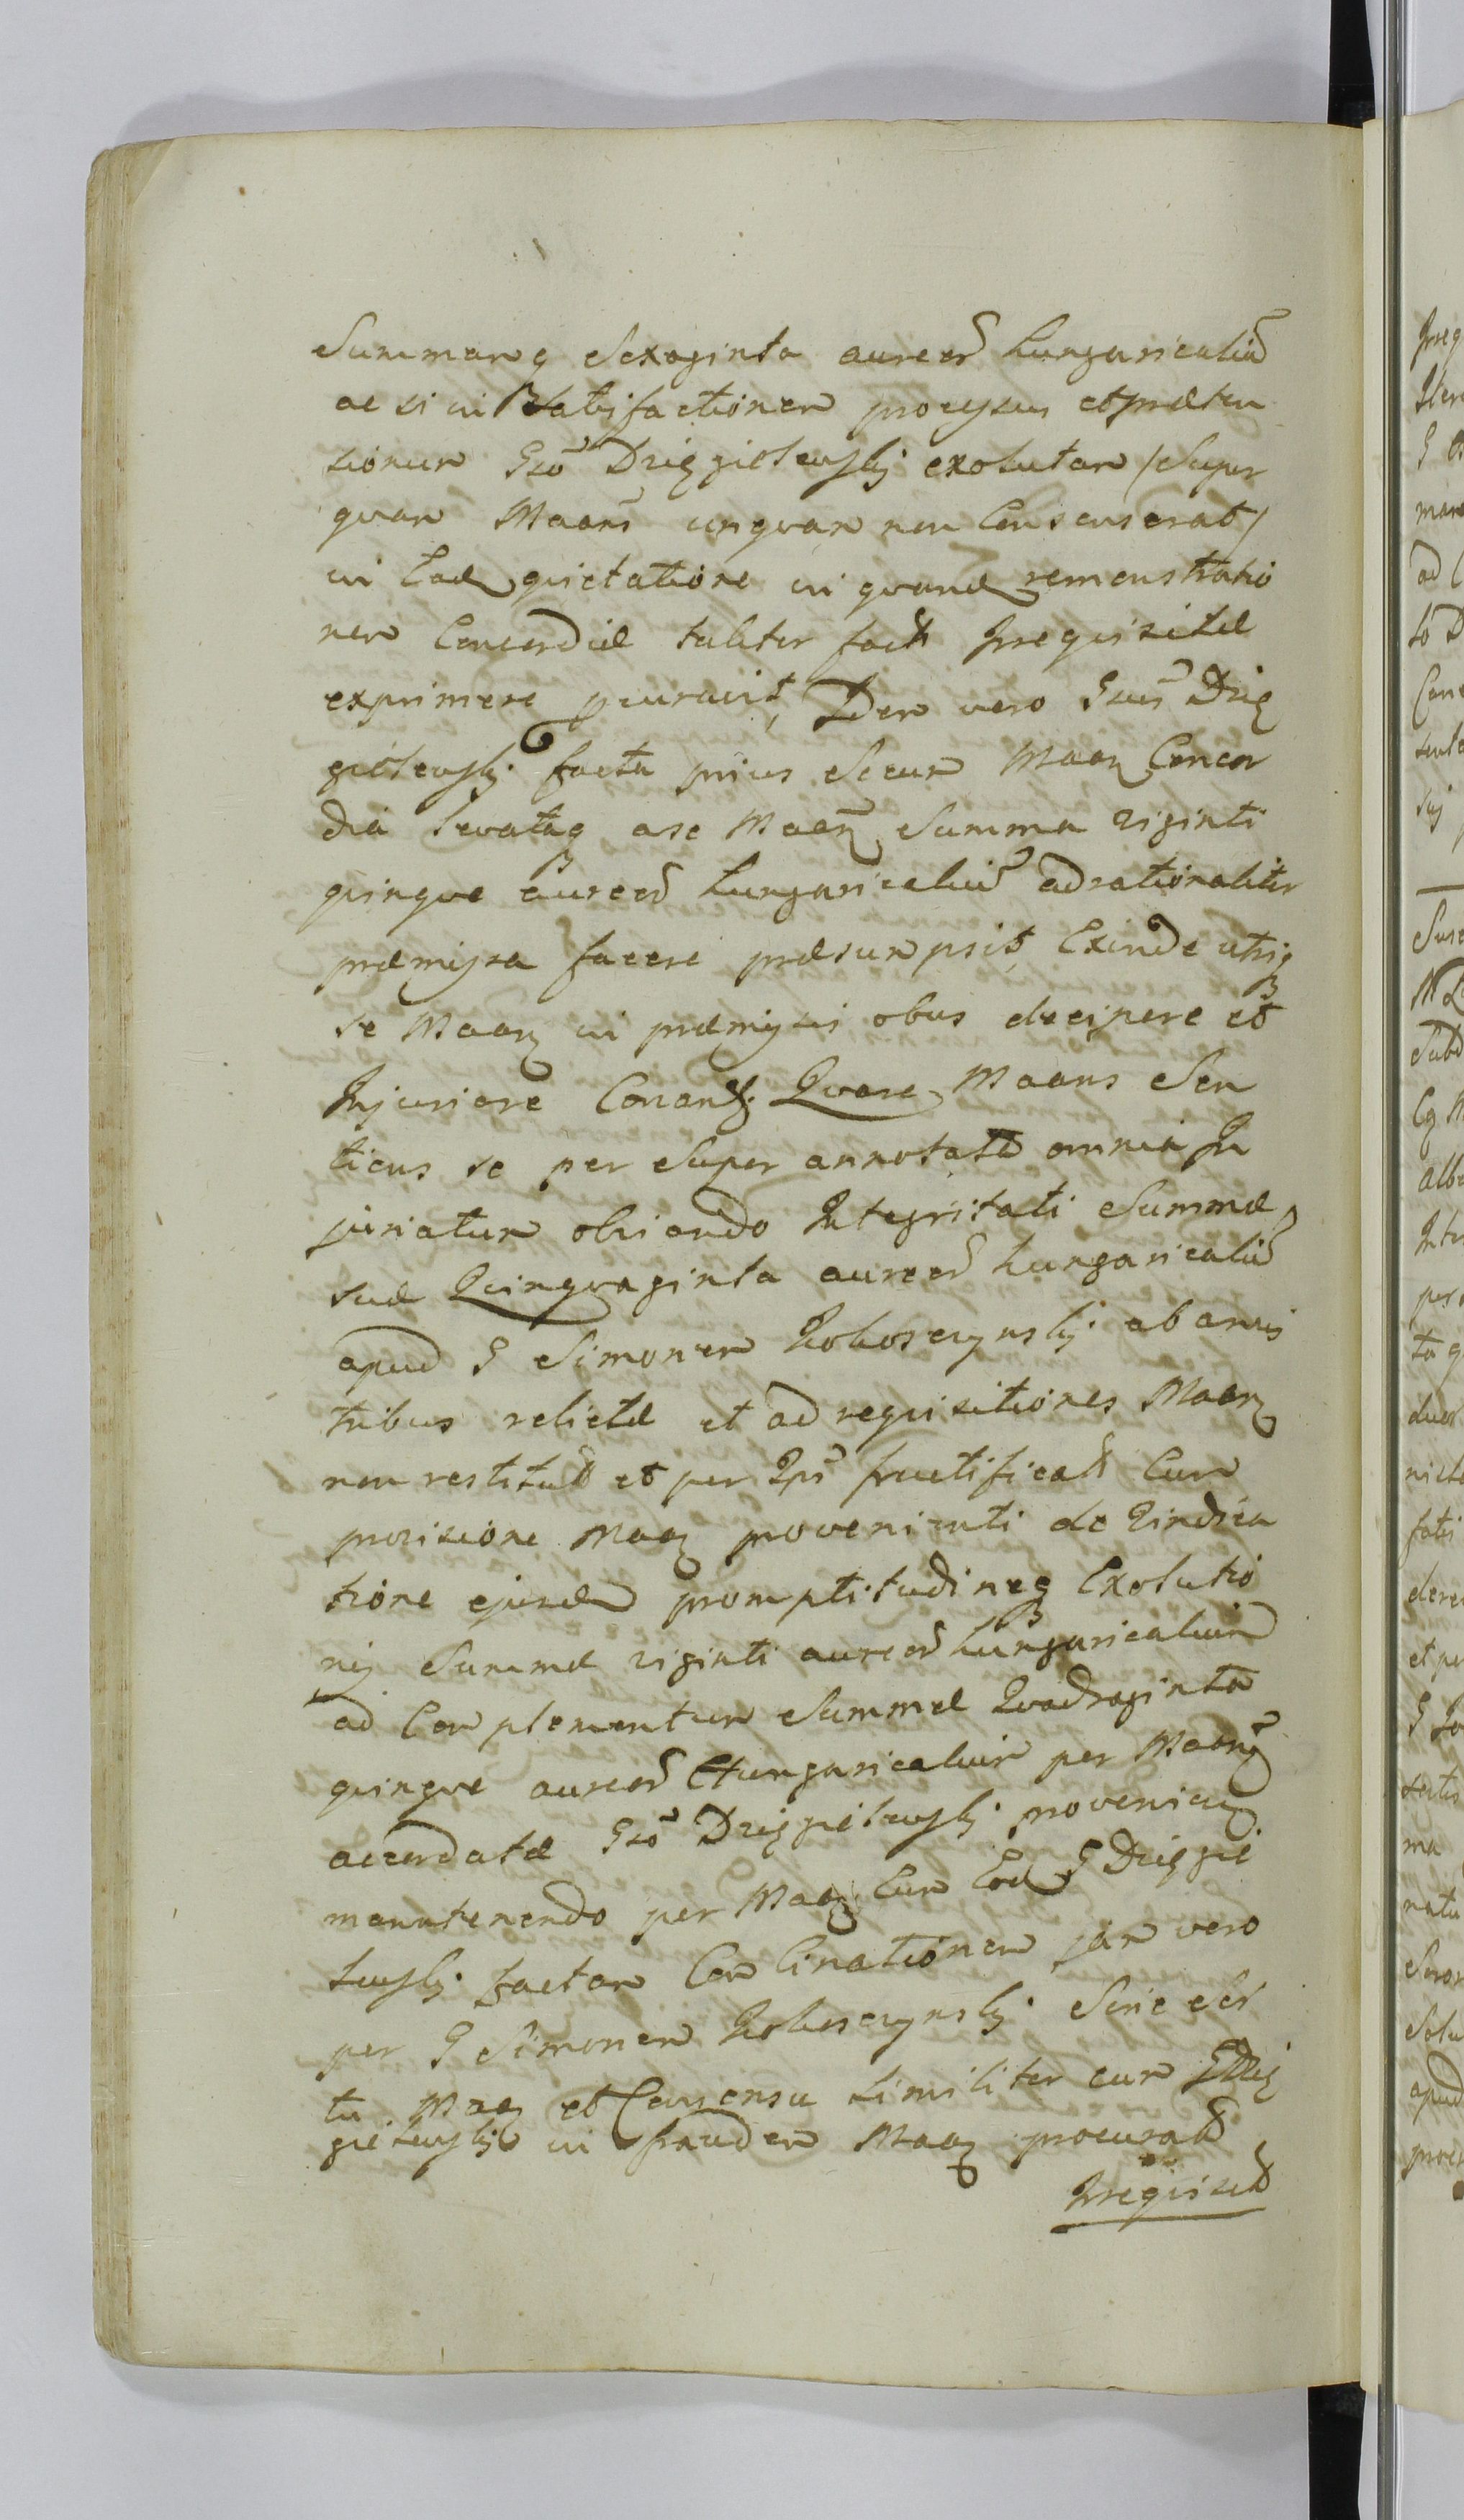 Summamq Sexaginta aureor̃ hungaricaliũ
ac si in Satisfactionem processus et præten
sionum Gsõ Dzięgielewsky exolutam /Super
quam Maañs unquam non Consenserat/
in Ead quietatione in quand remonstratio
nem Concordiæ taliter factæ Irrequisitæ
exprimere procuravit, Idem vero Gsus̃ Dzię
gielewsky facta prius Secum Maan Concor
dia levataq a se Maañ Summa viginti
quinque aureor̃ hungaricaliũ adrationaliter
præmissa facere præsumpsit, Exinde utriq
se Maan in præmissis obus decipere et
Injuriare Conant. Quare Maans Sen
tiens se per Super annotata omnia In
juriatum obviando Integritati Summæ
suæ Quinquaginta aureor̃ hungaricaliũ
apud G Simonem ab annis
tribus relictæ et ad requisitiones Maan
non restitutæ et per Ipm̃ fructificatæ Cum
provisione Maan provenienti de Vindica
tione ejusdem promptitudineq Exolutio
nis Summæ viginti aureor̃ hungaricalium
ad Complementum Summæ Quadraginta
quinque aureor̃ Hungaricalium per Maañ
accordatæ Gsõ Dzięgielewsky provenien
manutenendo per Maan Cum Eod G Dzięgie
lewsky factam Combinationem jam vero
per G Simonem Sine Sci
tu Maan et Consensu similiter cum GDzię
gielewsky in fraudem Maan procuratæ
Irrequisitæ